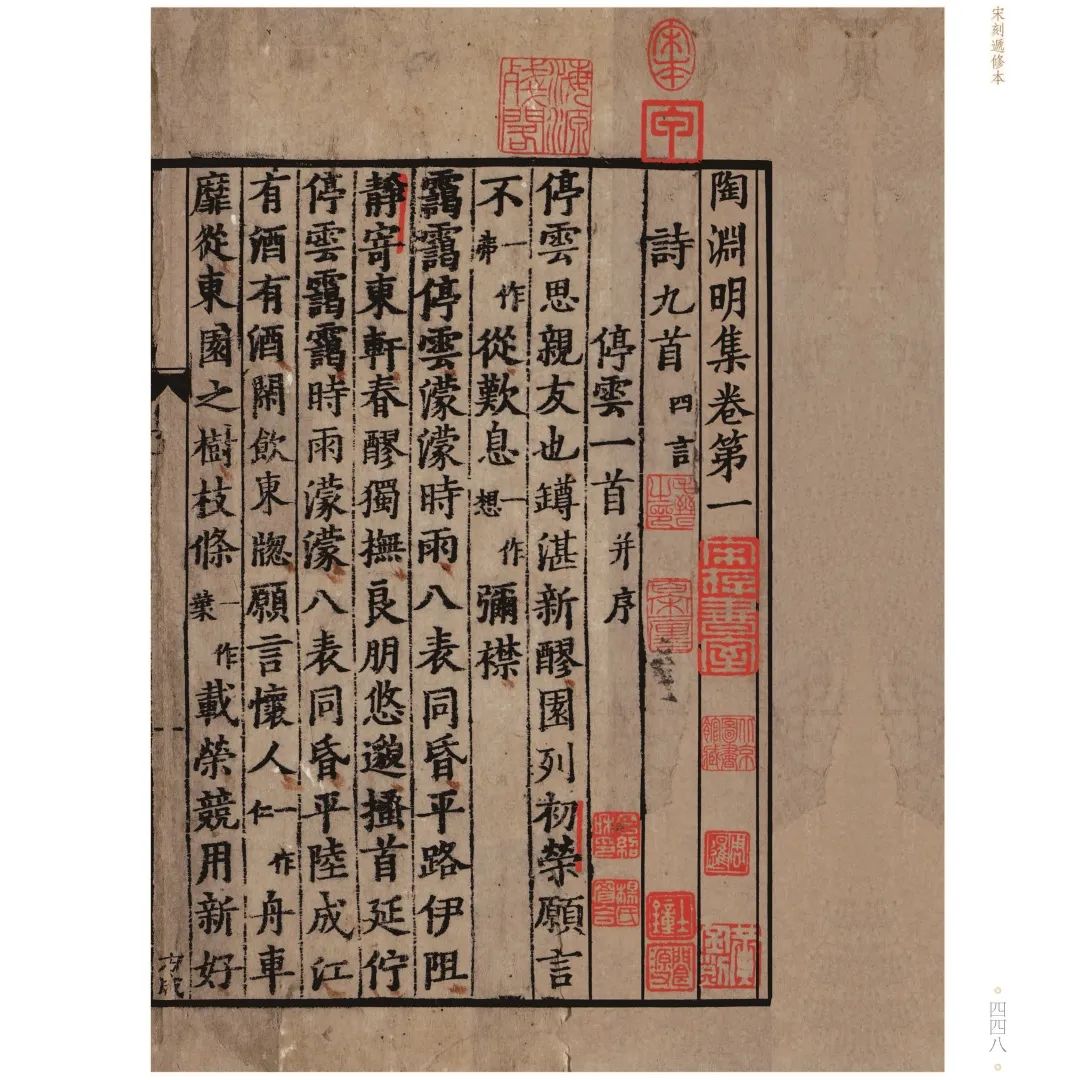 宋刻遞修本
陶淵明集卷第一
詩九首 四言
停雲一首 并序
停雲思親友也罇湛新醪園列初榮願言
不一作弗從歎息一作想彌襟
靄靄停雲濛濛時雨八表同昏平路伊阻
靜寄東軒春醪獨撫良朋悠邈搔首延佇
停雲靄靄時雨濛濛八表同昏平陸成江
有酒有酒閑飲東牎願言懷人一作仁舟車
靡從東園之樹枝條一作葉載榮競用新好
宋本
甲
海源殘閣
宋存書室
北京圖書館藏
周暹
楊氏
四四八